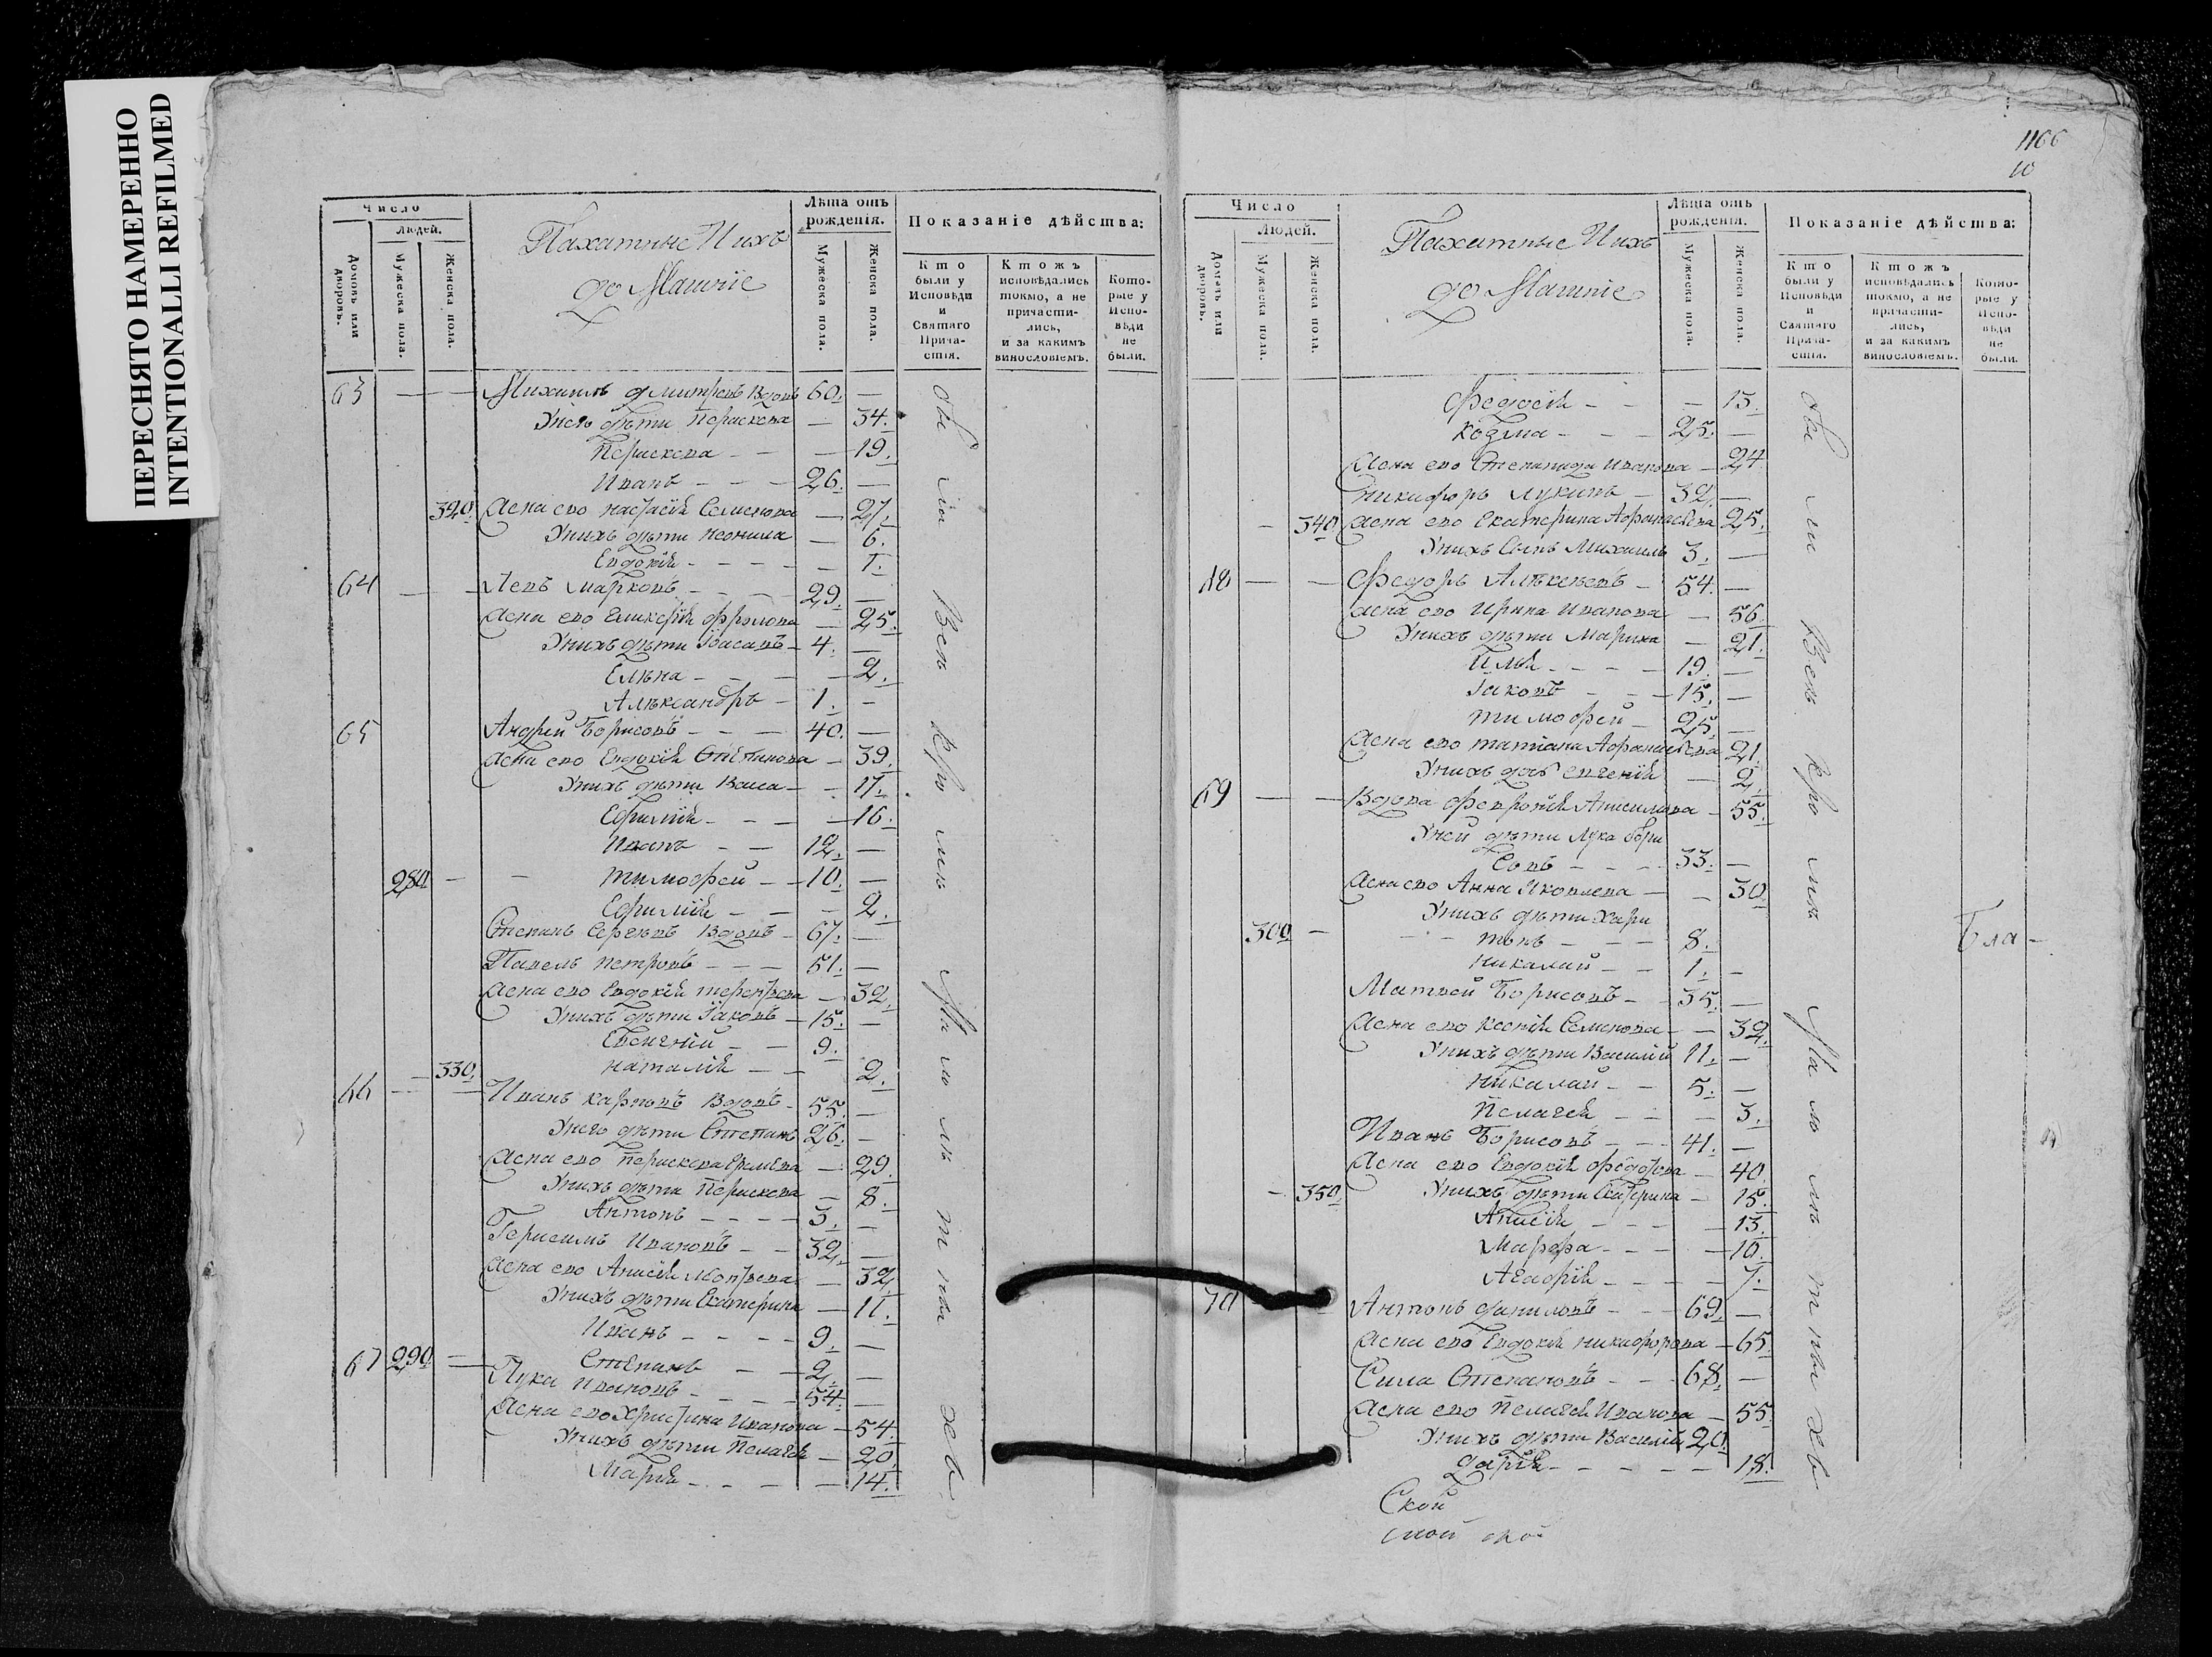 ПЕРЕСНЯТО НАМЕРЕННО
INTENTIONALLI REFILMED
1166
10
Число
Людей.
Домовъ или дворовъ.
Мужеска пола.
Женска пола.
Пахатные Ихъ
Лѣта отъ рожденія.
Мужеска пола.
Женска пола.
Показаніе дѣйства:
Кто были у Исповѣди и Святаго Причастія.
Ктожъ исповѣдались токмо, а не причастились, и за какимъ винословіемъ.
Которые у Исповѣди не были.
63 — — Михаилъ Дмитревъ вдовъ 60. —
У него дѣти Перасковa — 34.
Перасковa — — — 19.
Иванъ — — — 26. —
320. Жена ево Настасія Семенова — 27.
У нихъ дѣти Неонила — 6.
Евдокія — — — — 1.
64 — — Левъ Марковъ — — — 29. —
Жена ево Гликерія Фролова — 25.
У нихъ дѣти Іоасавъ — 4. —
Елѣна — — — 2.
Алѣксандръ — 1. —
65 Андрей Борисовъ — — — 40. —
Жена ево Евдокія Степанова — 39.
У нихъ дѣти Васса — — 17.
Ефимія — — — 16.
Иванъ — — 12. —
280 — — Тимофей — — 10. —
Ефимія — — — 2.
Степанъ Сергѣевъ вдовъ — 67. —
Павелъ Петровъ — — — 51. —
Жена ево Евдокія Терентьева — 32.
У нихъ дѣти Іаковъ — 15. —
Евгеній — — 9.
330. Наталія — — 2.
66 — — Иванъ Карповъ вдовъ — 55. —
У него дѣти Степанъ 26. —
Жена ево Перасковa — 29.
У нихъ дѣти Перасковa — 8.
Антонъ — — — — 3. —
Герасимъ Ивановъ — — 32. —
Жена ево Анисія — 32.
У нихъ дѣти Екатерина — 11.
Иванъ — — — — 9. —
290 — Степанъ — — 2. —
67 Лука Ивановъ — — — — 54. —
Жена ево Христина Иванова — 54.
У нихъ дѣти Пелагея — 20.
Марія — — — — 14.
Число
Людей.
Домовъ или дворовъ.
Мужеска пола.
Женска пола.
Пахатные Ихъ
Лѣта отъ рожденія.
Мужеска пола.
Женска пола.
Показаніе дѣйства:
Кто были у Исповѣди и Святаго Причастія.
Ктожъ исповѣдались токмо, а не причастились, и за какимъ винословіемъ.
Которые у Исповѣди не были.
Федосія — — — 13.
Козма — — — 25. —
Жена ево Степанида Иванова — 24
Никифоръ Лукинъ — 32. —
— 340 Жена ево Екатерина Афанасьева 25.
У нихъ сынъ Михаилъ 3. —
68 — — Федоръ Алѣксѣевъ — 54. —
Жена ево Ирина Иванова — 56.
У нихъ дѣти Марина — 21.
Илья — — — — 19. —
Іаковъ — — — 15. —
Тимофей — 25. —
Жена ево Татіана Афанасьева 21.
У нихъ дочь Евгенія — 2.
69 — — Вдова Февронія Анисимова — 55.
У ней дѣти Лука Бори
совъ — — — 33. —
Жена ево Анна Яковлева — — 30.
У нихъ дѣти Хари
300 — — — тонъ — — — 8.
Николай — — 1. —
Матвей Борисовъ — — 35. —
Жена ево Ксенія Семенова — — 32.
У нихъ дѣти Василій 11. —
Николай — — 5. —
Пелагея — — — 3.
Иванъ Борисовъ — — — 41. —
Жена ево Евдокія Федорова — 40.
— 350. У нихъ дѣти Екатерина — 15.
Анисія — — — — 13.
Марфа — — — — 10.
Агафія — — — — 7.
70 Антонъ Даниловъ — — — 69. —
Жена ево Евдокія Никифорова — 65.
Сила Степановъ — — — 68. —
Жена ево Пелагея Иванова — 55.
У нихъ дѣти Василій 20.
Дарія — — — — — 18.
Бла —
Ской